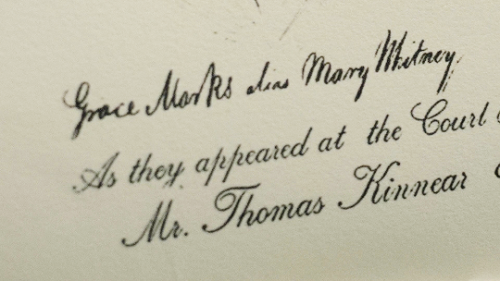 Grace Marks alias Mary Whitney
As they appeared at the Court
Mr. Thomas Kinnear